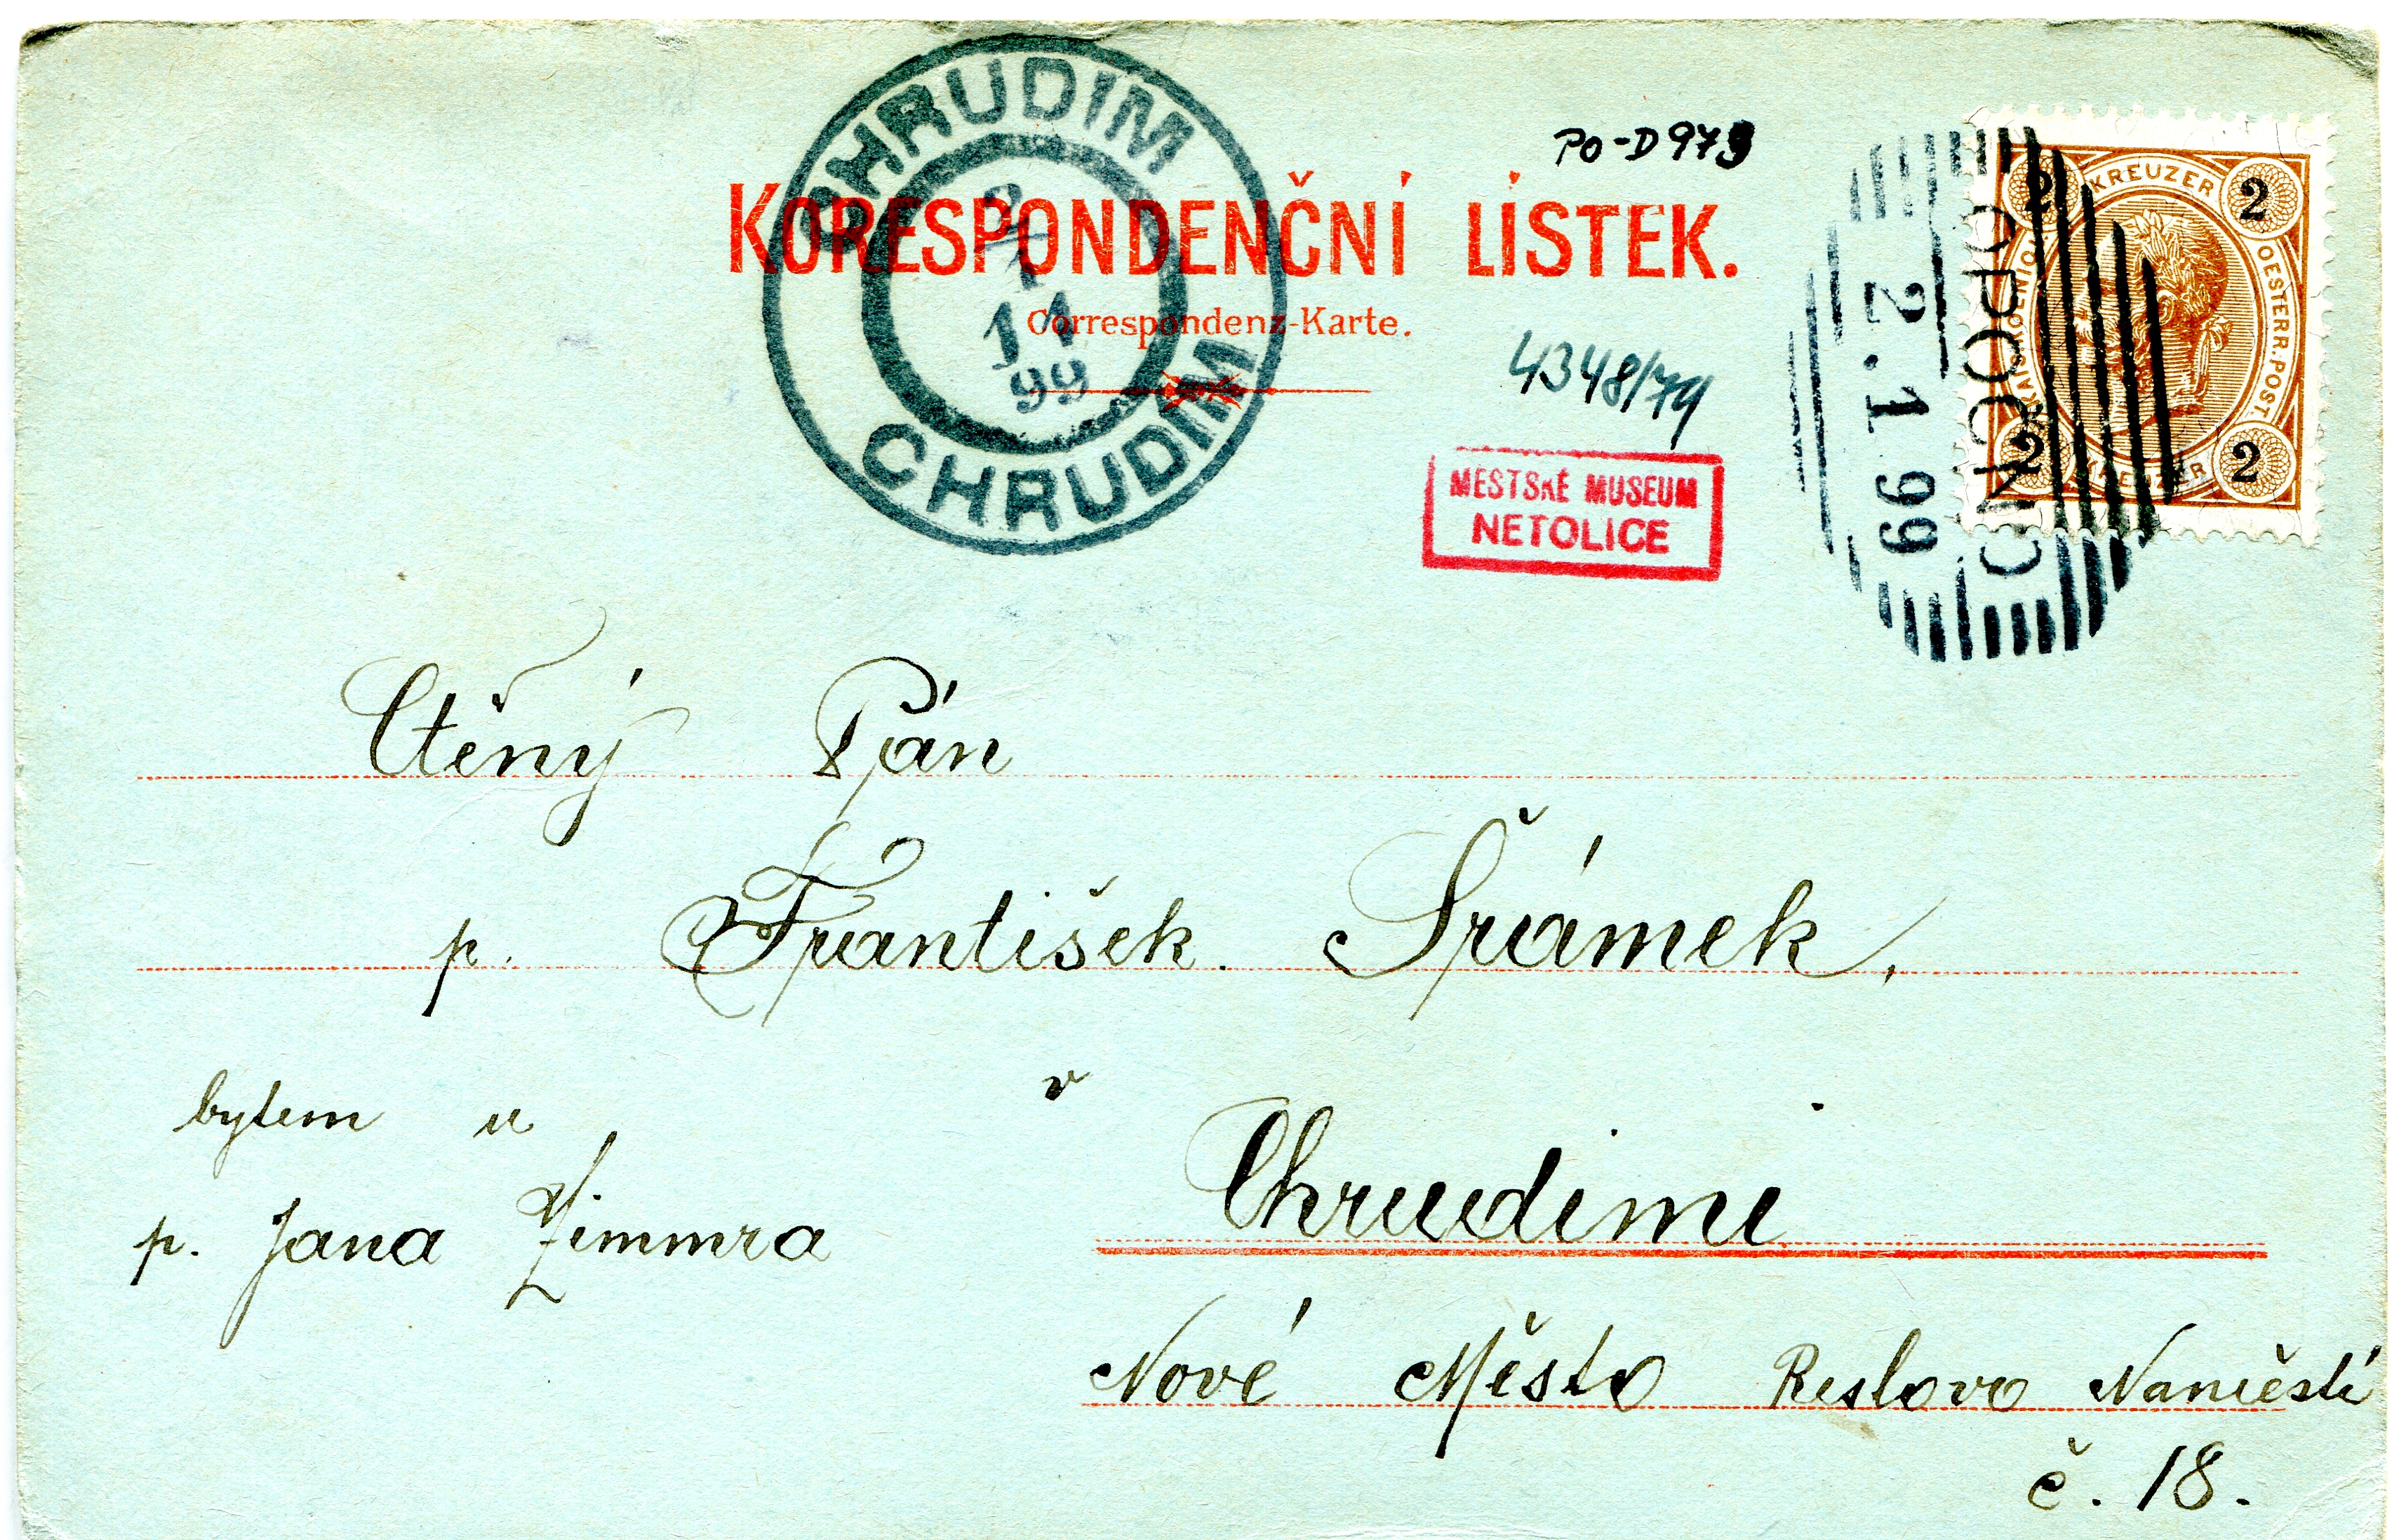 CHRUDIM
2
1
11
99
CHRUDIM
PO-D 973
KORESPONDENČNÍ LÍSTEK.
Correspondenz-Karte.
4348/74
MĚSTSKÉ MUSEUM
NETOLICE
OPOCNO
2.1.99
2 KREUZER 2
OESTERR. POST.
2 KREUZER 2
Ctěný Pán
p. František Šrámek,
bytem u v
p. Jana Zimmra Chrudimi
Nové Město Reslovo Naměstí
č. 18.